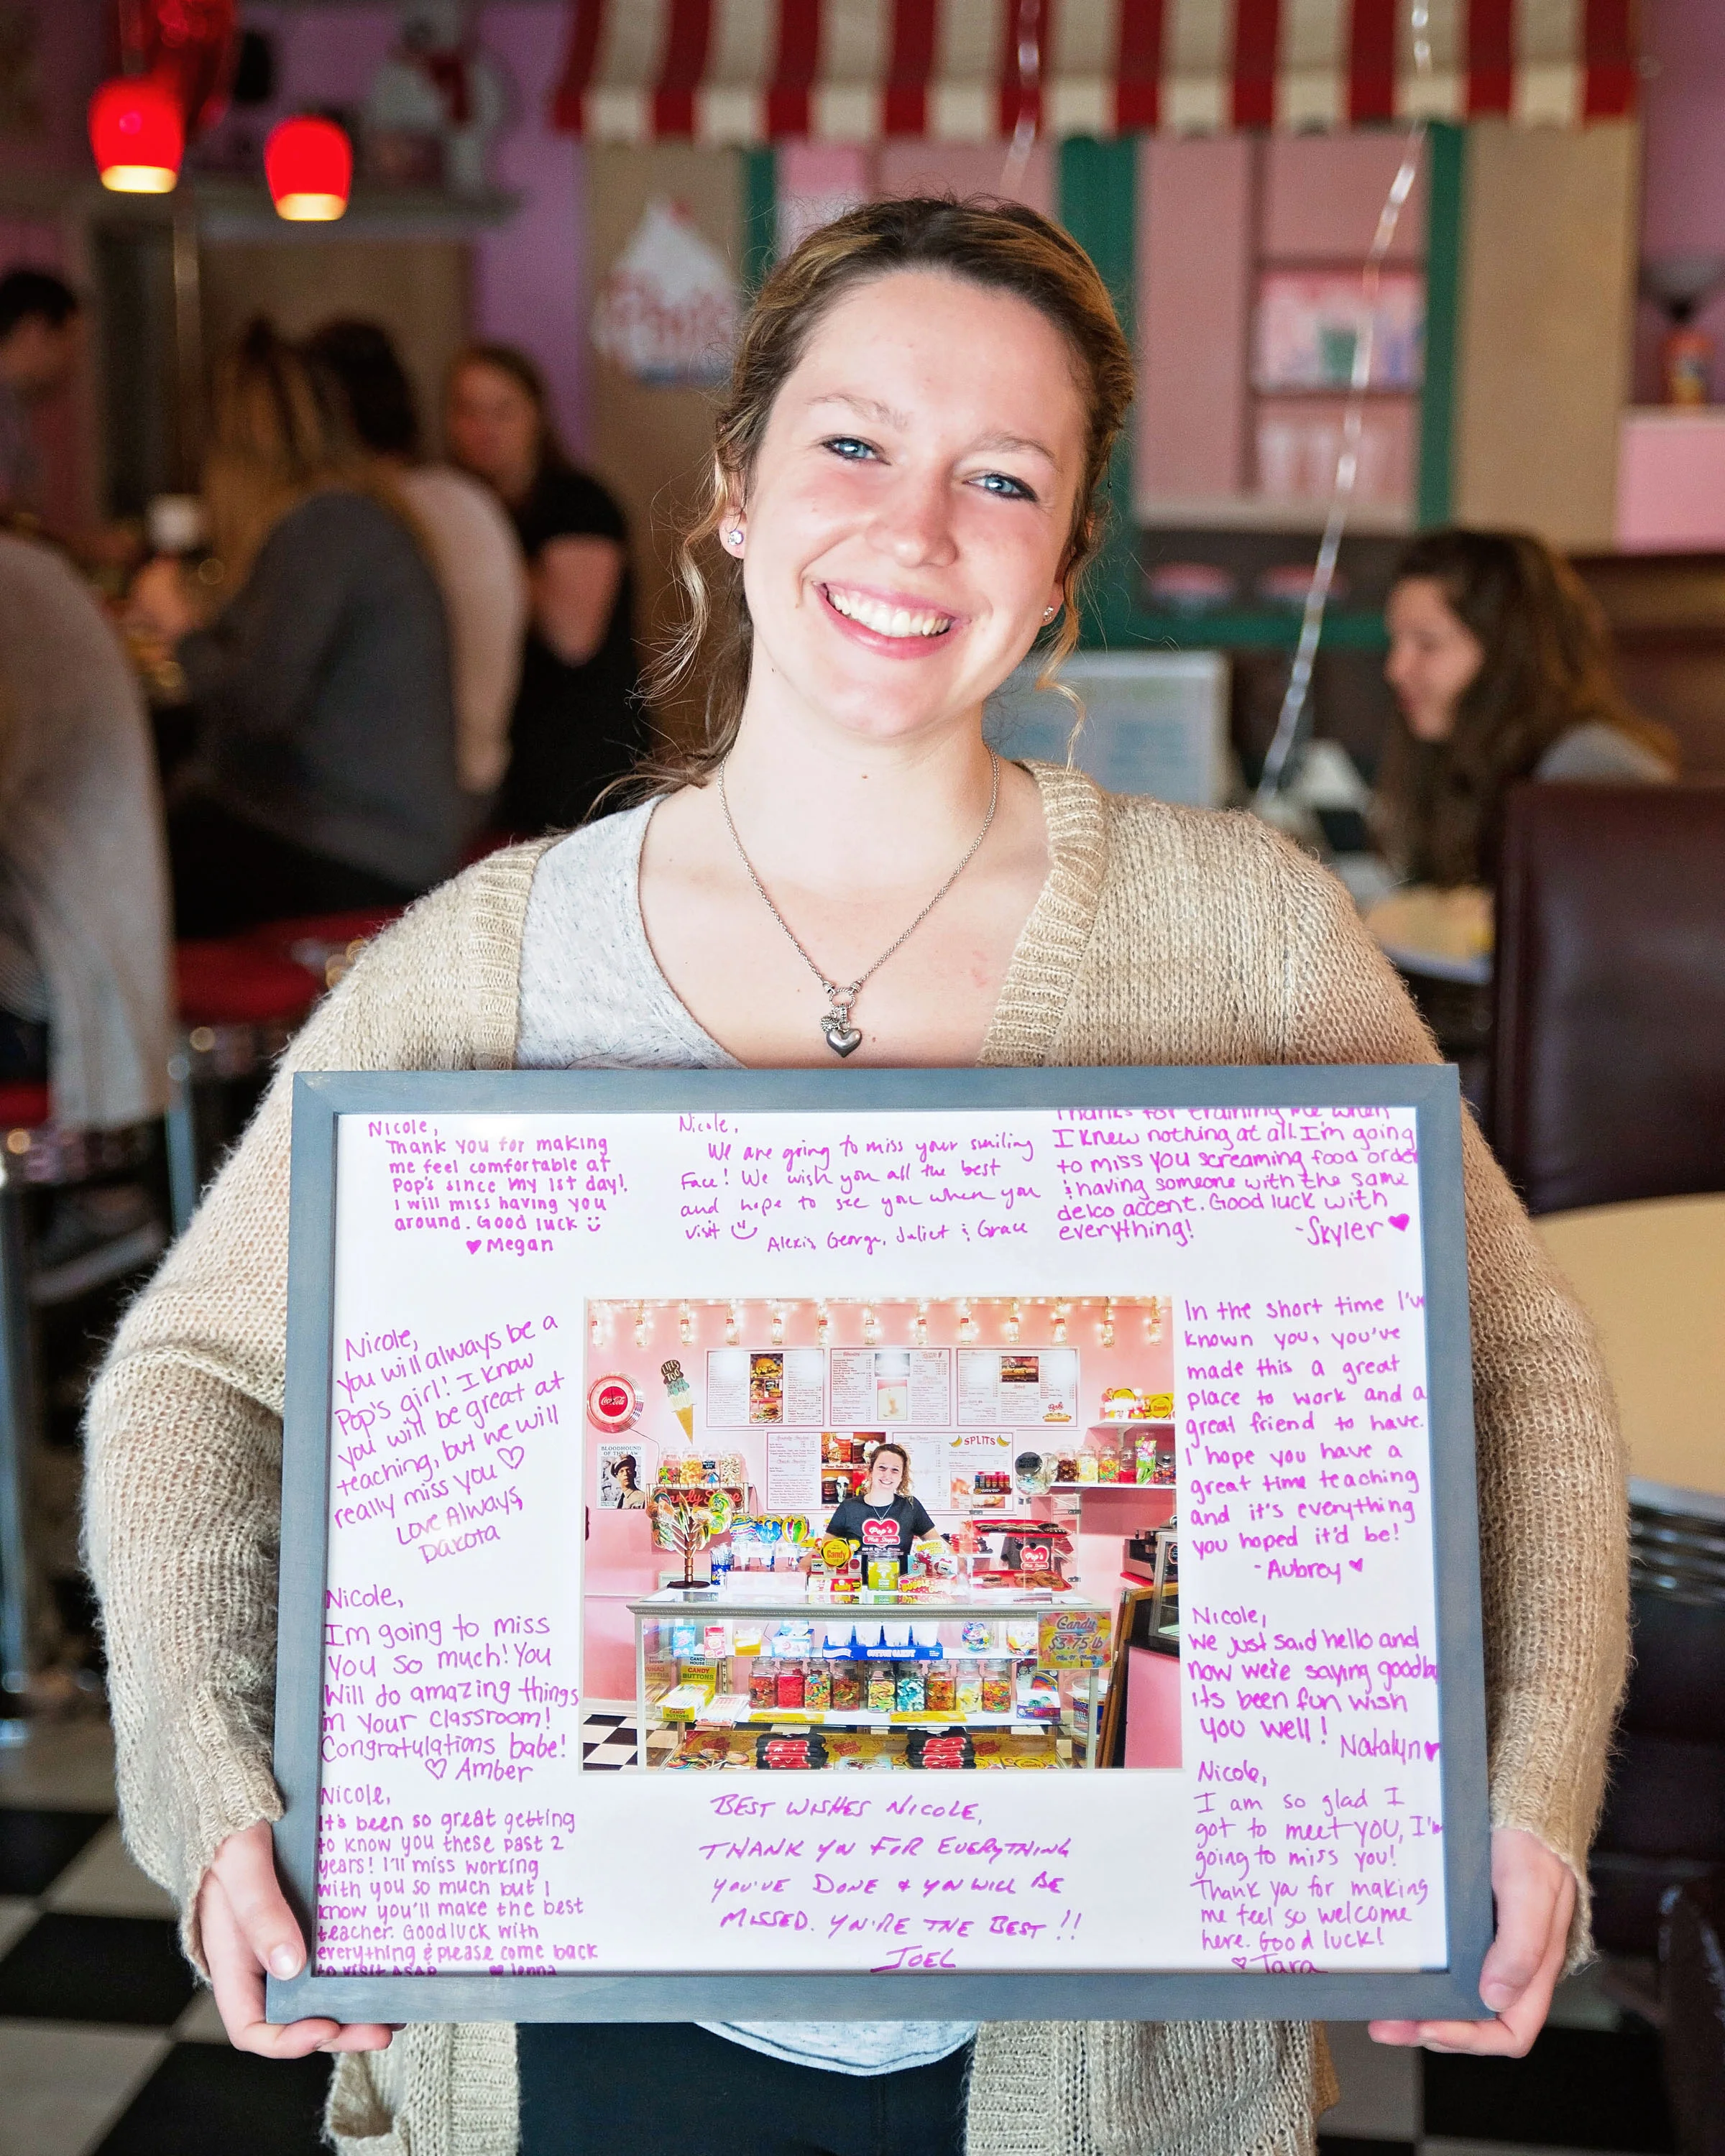 Nicole,
Thank you for making
me feel comfortable at
Pop's since my 1st day!
I will miss having you
around. Good luck ü
♥ Megan
Nicole,
We are going to miss your smiling
Face! We wish you all the best
and hope to see you when you
visit
Alexis, George, Juliet & Grace
Thanks for training me when
I knew nothing at all. I'm going
to miss you screaming food order
& having someone with the same
delco accent. Good luck with
everything!
-Skyler ♥
Nicole,
You will always be a
Pop's girl! I know
you will be great at
teaching, but we will
really miss you ♡
Love Always,
Dakota
Nicole,
Im going to miss
You so much! You
Will do amazing things
in your classroom!
Congratulations babe!
♡ Amber
Nicole,
It's been so great getting
to know you these past 2
years! I'll miss working
with you so much but I
know you'll make the best
teacher. Goodluck with
everything & please come back
to visit ASAP ♥ Jenna
In the short time I've
known you, you've
made this a great
place to work and a
great friend to have.
I hope you have a
great time teaching
and it's everything
you hoped it'd be!
-Aubrey ♥
Nicole,
We just said hello and
now we're saying goodb
its been fun wish
you well!
Natalyn ♥
Nicole,
I am so glad I
got to meet you, I'm
going to miss you!
Thank you for making
me feel so welcome
here. Good luck!
♡ Tara
BEST WISHES NICOLE,
THANK YOU FOR EVERYTHING
YOU'VE DONE & YOU WILL BE
MISSED. YOU'RE THE BEST!!
JOEL
Coca-Cola
BLOODHOUND
OF THE LAW
SPLITS
Pop's
Candy
Pop's
Candy
$3.75 lb
COTTON CANDY
CANDY
BUTTONS